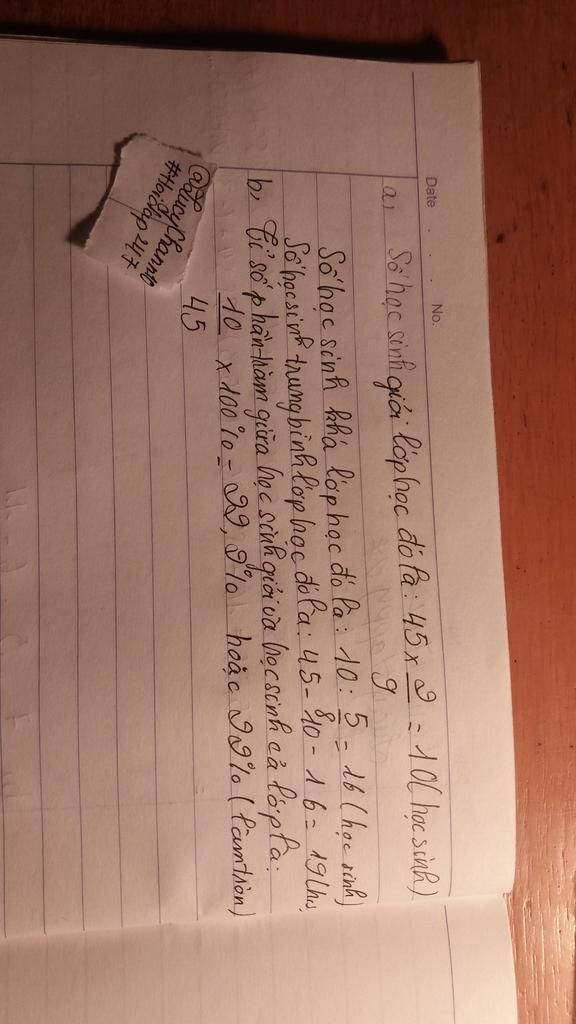 Date . . . No.
a, Số học sinh giỏi lớp học đó là: 45 x 2/9 = 10 (học sinh)
Số học sinh khá lớp học đó là: 10 : 5/8 = 16 (học sinh)
Số học sinh trung bình lớp học đó là: 45 - 10 - 16 = 19 (hs)
b, Tỉ số phần trăm giữa học sinh giỏi và học sinh cả lớp là:
10/45 x 100% = 22,2% hoặc 22% (làm tròn)
#Hoidap247